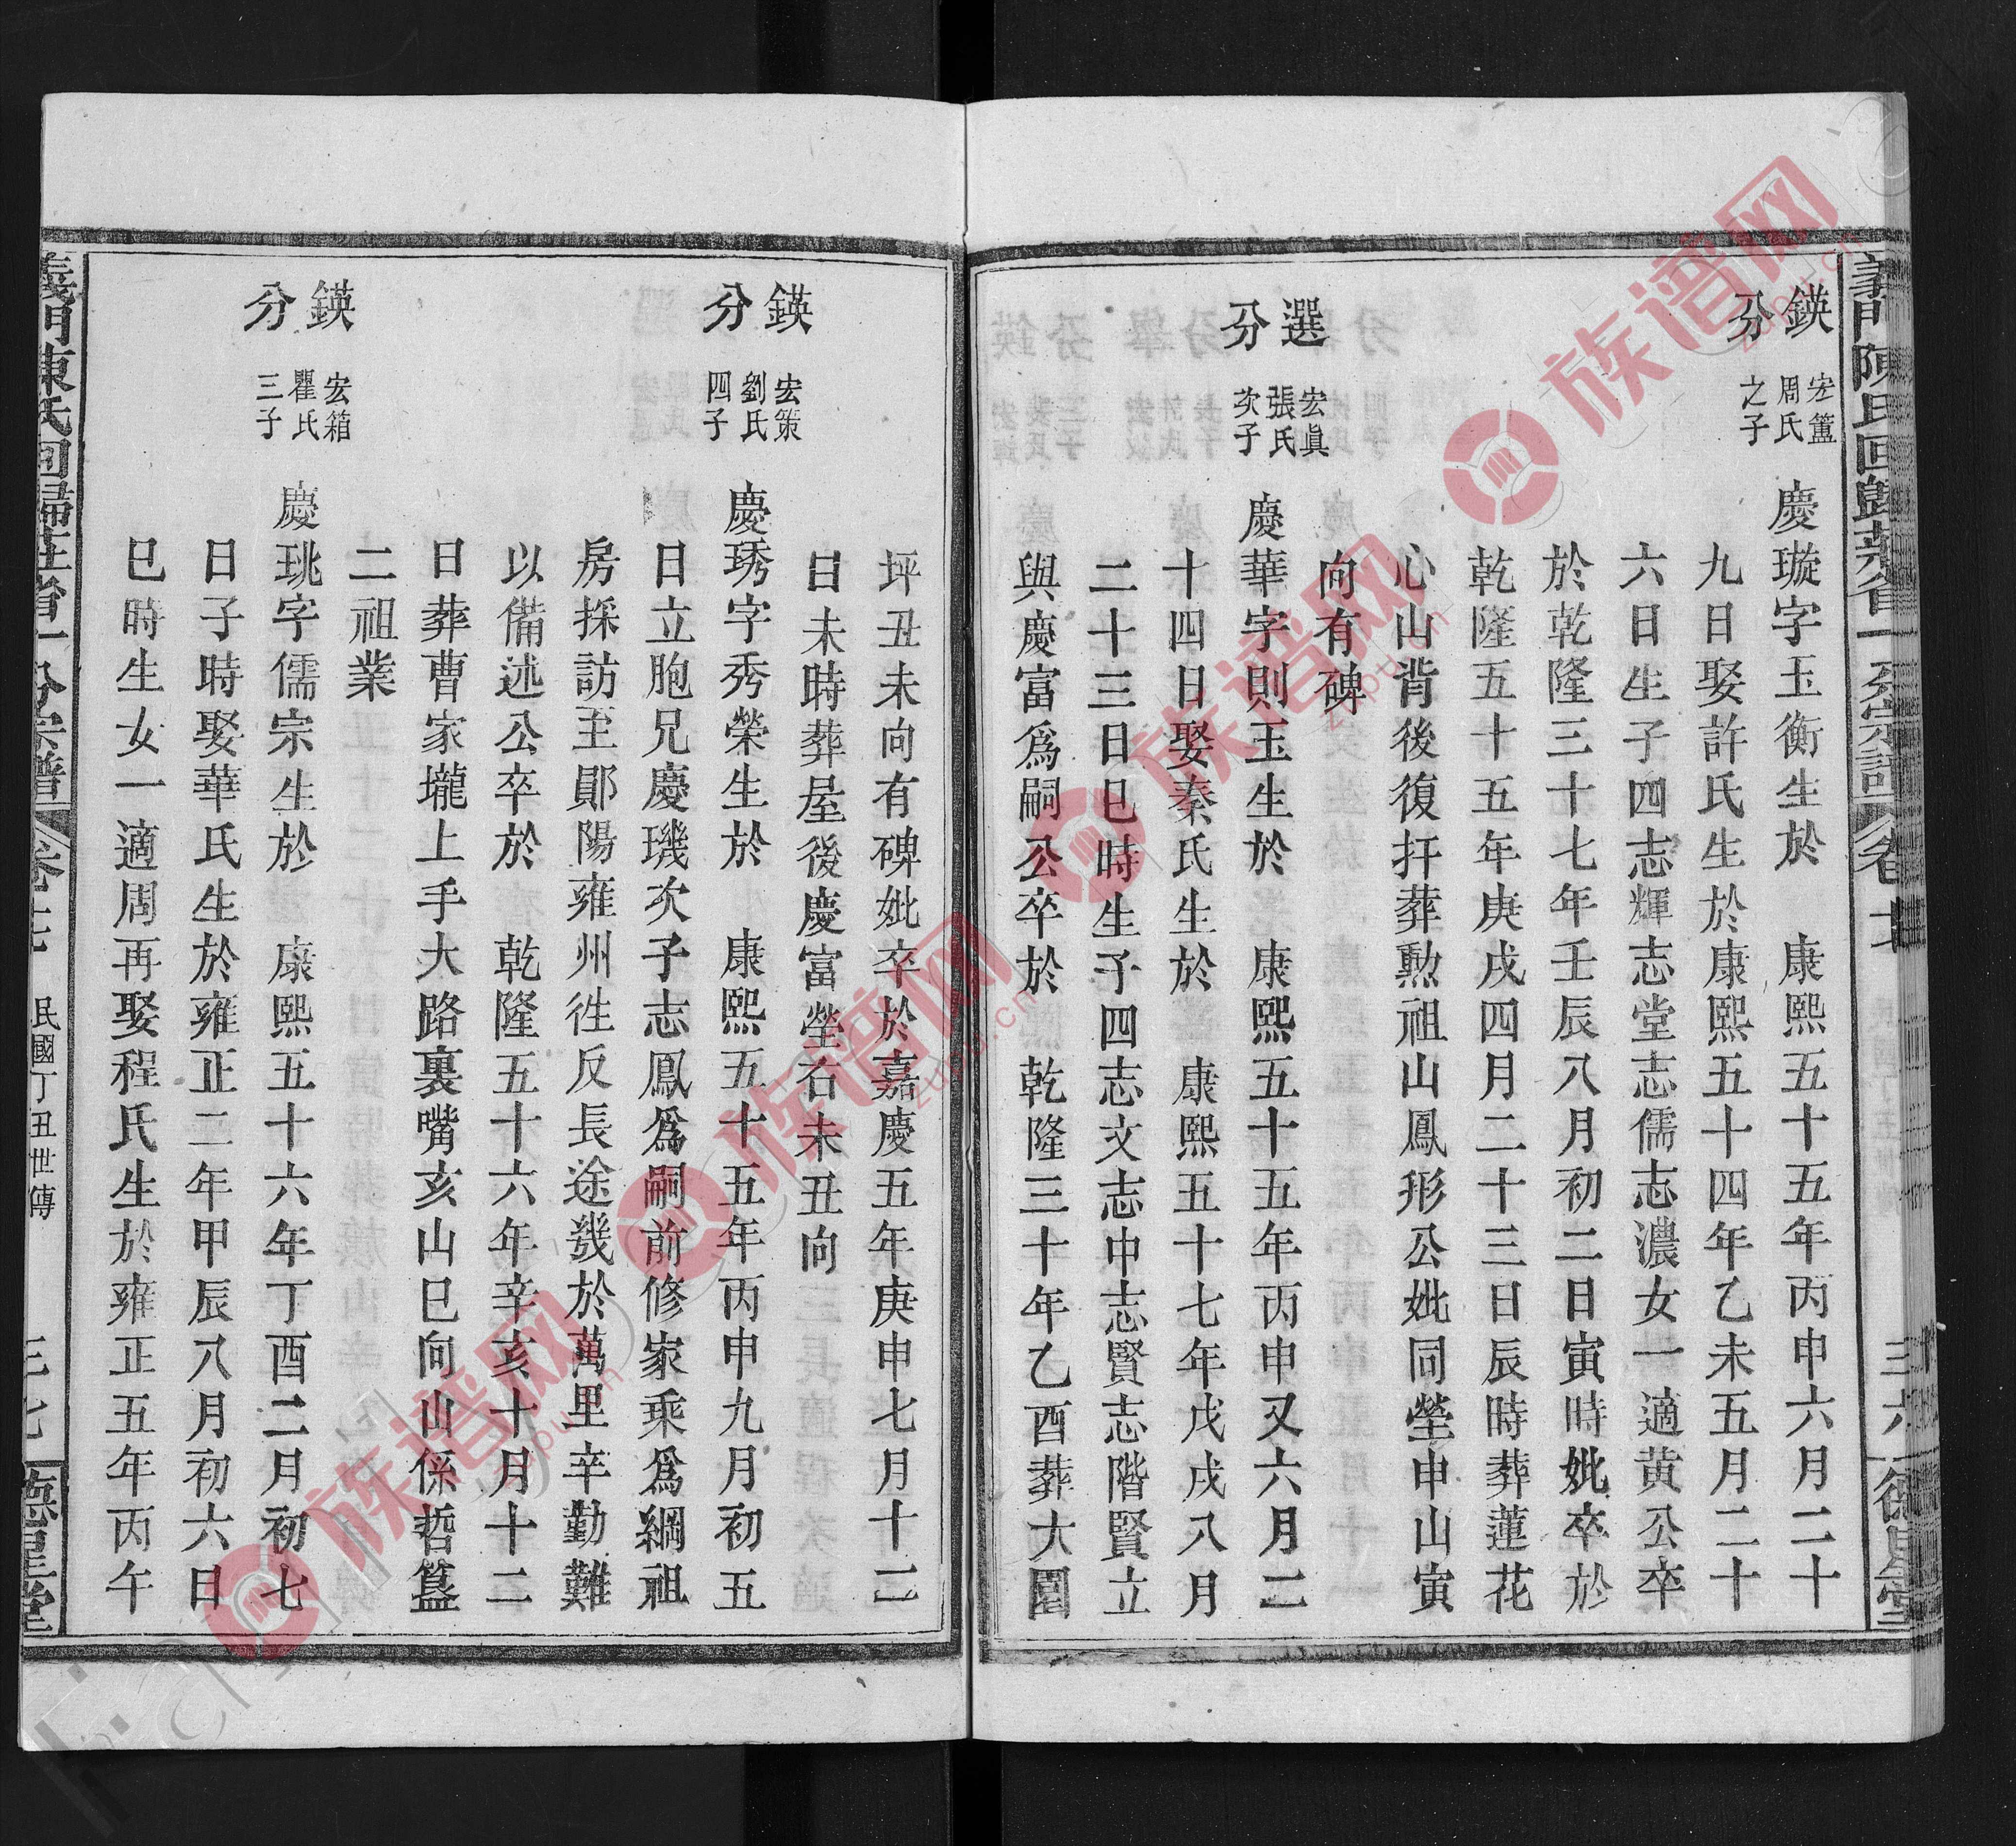 義門陳氏回歸莊省一分宗譜 卷十七 三六 德星堂
鍈分
宏簠
周氏
之子
慶璇字玉衡生於 康熙五十五年丙申六月二十
九日娶許氏生於康熙五十四年乙未五月二十
六日生子四志輝志堂志儒志濃女一適黃公卒
於乾隆三十七年壬辰八月初二日寅時妣卒於
乾隆五十五年庚戌四月二十三日辰時葬蓮花
心山背後復扞葬勲祖山鳳形公妣同塋申山寅
向有碑
選分
宏眞
張氏
次子
慶華字則玉生於 康熙五十五年丙申又六月二
十四日娶秦氏生於 康熙五十七年戊戌八月
二十三日巳時生子四志文志中志賢志階賢立
與慶富爲嗣公卒於 乾隆三十年乙酉葬大園
坪丑未向有碑妣卒於嘉慶五年庚申七月十二
日未時葬屋後慶富塋右未丑向
鍈分
宏策
劉氏
四子
慶琇字秀榮生於 康熙五十五年丙申九月初五
日立胞兄慶璣次子志鳳爲嗣前修家乘爲綱祖
房採訪至鄖陽雍州徃反長途幾於萬里辛勤難
以備述公卒於 乾隆五十六年辛亥十月十二
日葬曹家壠上手大路裏嘴亥山巳向山係哲簋
二祖業
鍈分
宏箱
瞿氏
三子
慶珧字儒宗生於 康熙五十六年丁酉二月初七
日子時娶華氏生於雍正二年甲辰八月初六日
巳時生女一適周再娶程氏生於雍正五年丙午
義門陳氏回歸莊省一分宗譜 卷十七 民國丁丑世傳 三七 德星堂